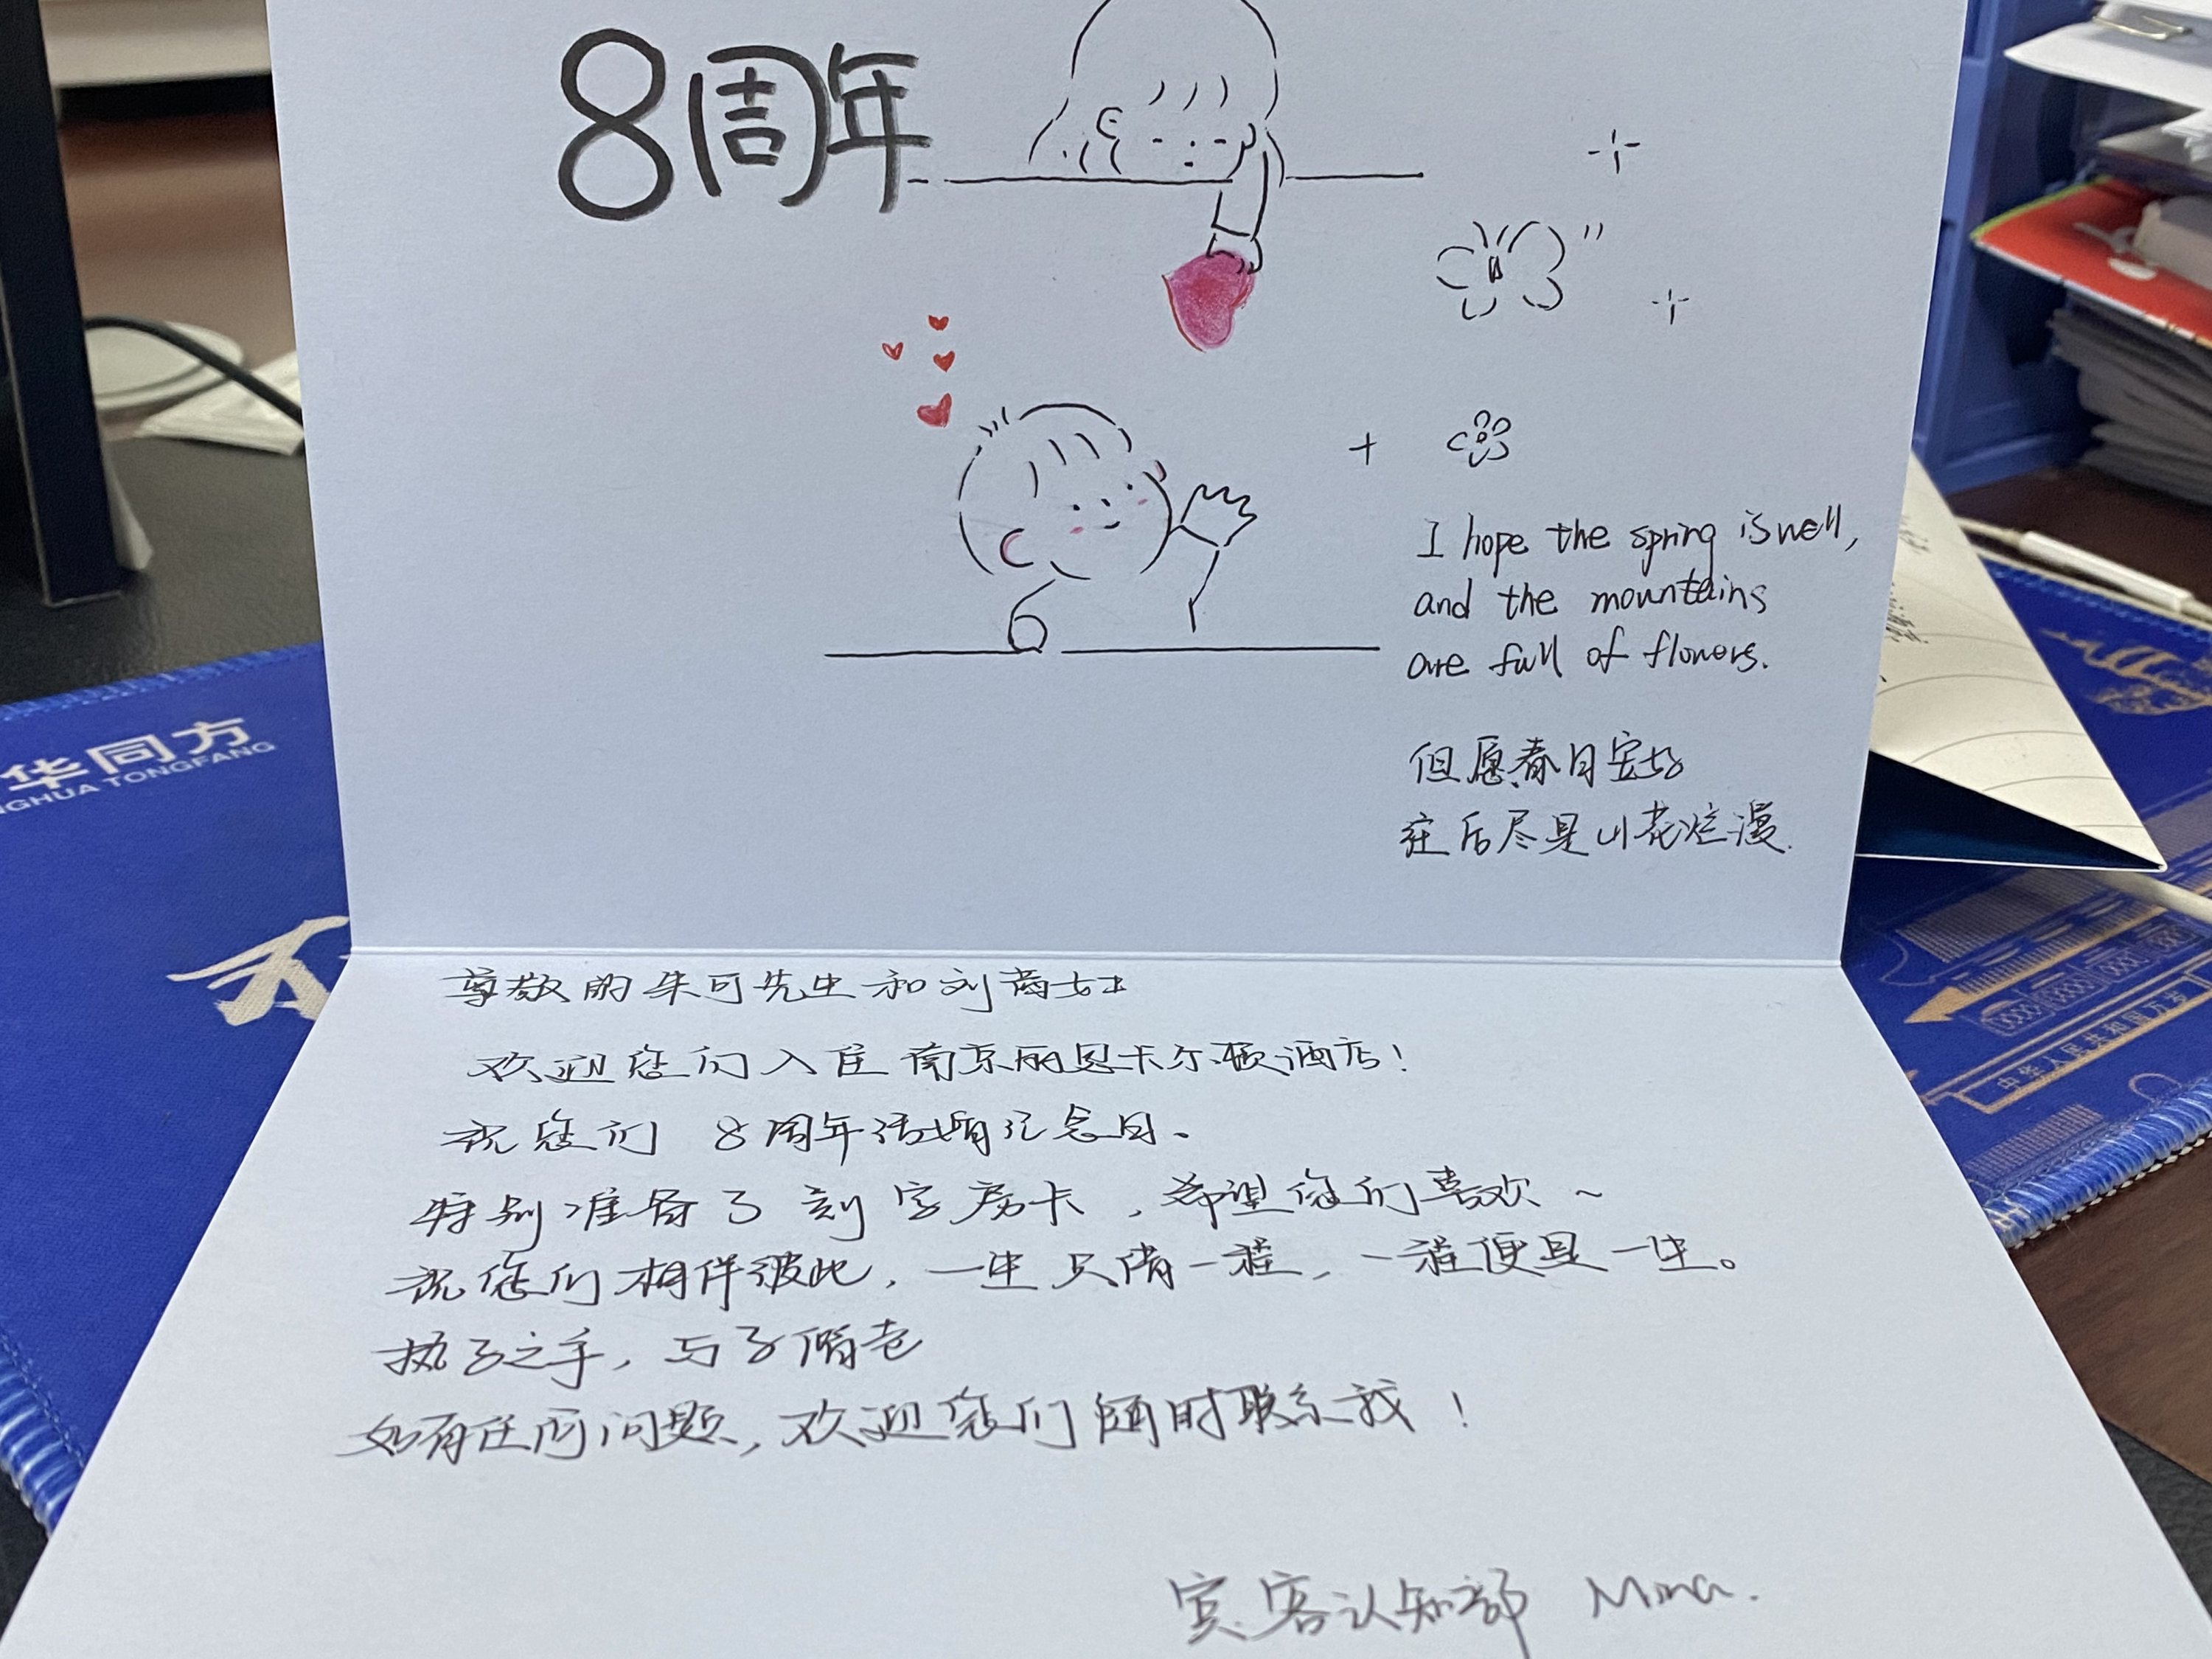 8周年
I hope the spring is well,
and the mountains
are full of flowers.
但愿春日安好
往后尽是山花烂漫.
尊敬的朱可先生和刘茜女士
欢迎您们入住南京丽思卡尔顿酒店!
祝您们 8周年结婚纪念日。
特别准备了刻字房卡,希望您们喜欢~
祝您们相伴彼此,一生只情一程,一程便是一生。
执子之手,与子偕老
如有任何问题,欢迎您们随时联系我!
宾客认知部 Mina.
华同方
NGHUA TONGFANG
中华人民共和国万岁